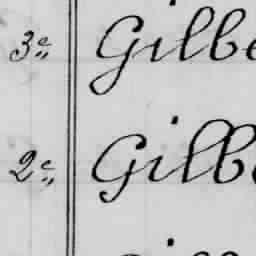 3e Gilbe
2e Gilbe